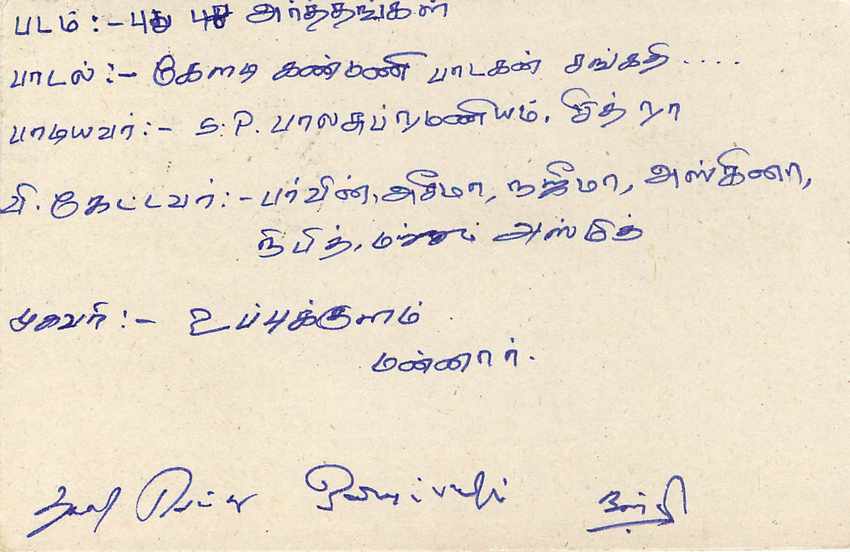 படம் :- புது புது அர்த்தங்கள்
பாடல் :- கேளடி கண்மணி பாடகன் சங்கதி ....
பாடியவர் :- S.P. பாலசுப்ரமணியம், சித்ரா
வி. கேட்டவர் :- பர்வின், அசீமா, நஜீமா, அஸ்கினா,
நிபித், மற்றும் அஸ்மித்
முகவரி :- உப்புக்குளம்
மன்னார்.
தயவு செய்து ஒலிபரப்பவும் நன்றி